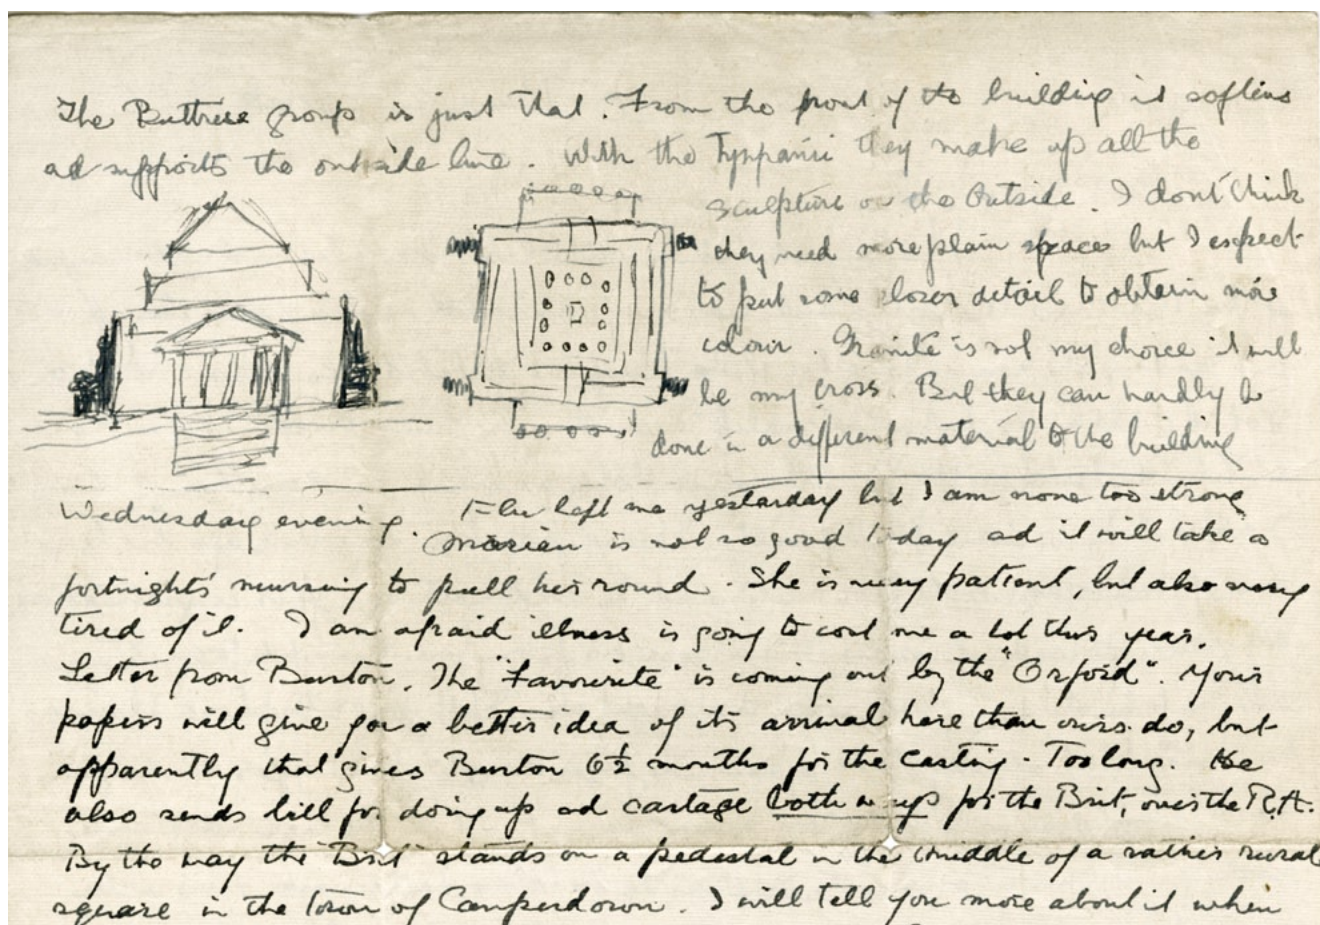 The Buttress group is just that. From the front of the building it softens
ad supports the outside line. With the Tympanii they make up all the
sculpture on the Outside. I don't think
they need more plain spaces but I expect
to put some closer detail to obtain more
colour. Granite is not my choice it will
be my cross. But they can hardly be
done in a different material to the building
Wednesday evening. Flu left me yesterday but I am none too strong
Marian is not so good today ad it will take a
fortnights nursing to pull her round. She is very patient, but also very
tired of it. I am afraid illness is going to cost me a lot this year.
Letter from Burton. The "Favourite" is coming out by the "Orford". Your
papers will give you a better idea of its arrival here than ours do, but
apparently that gives Burton 6½ months for the casting. Too long. He
also sends bill for doing up ad cartage both ways for the Brit, over the R.A.
By the way the "Brit" stands on a pedestal in the middle of a rather rural
square in the town of Camperdown. I will tell you more about it when